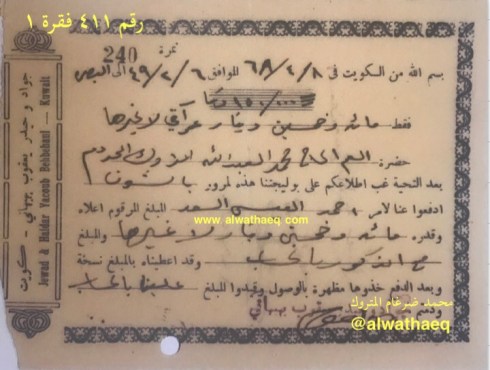 رقم ٤١١ فقرة ١
نمرة
240
بسم الله من الكويت في ٦٨/٤/٨ الموافق ٤٩/٢/٦ الى
١٥٠/٠٠٠
فقط مائة وخمسين دينار عراقي لا غيرها
حضرة: العم الحاج محمد العبدالله المحترم
بعد التحية غب اطلاعكم على بوليجتنا هذه لمرور
ادفعوا عنا لامر حمد السعد المبلغ المرقوم اعلاه
www.alwathaeq.com
وقدره مائة وخمسين دينار لا غيرها والمبلغ
المذكور بالحساب وقد اعطيناه بالمبلغ نسخة
وبعد الدفع خذوها مظهرة بالوصول وقيدوا المبلغ علينا بالحساب
محمد ضرغام المتروك
@alwathaeq
جواد و حيدر يعقوب بهبهاني — كويت
Jewad & Haidar Yacoub Behbehani — Kuwait